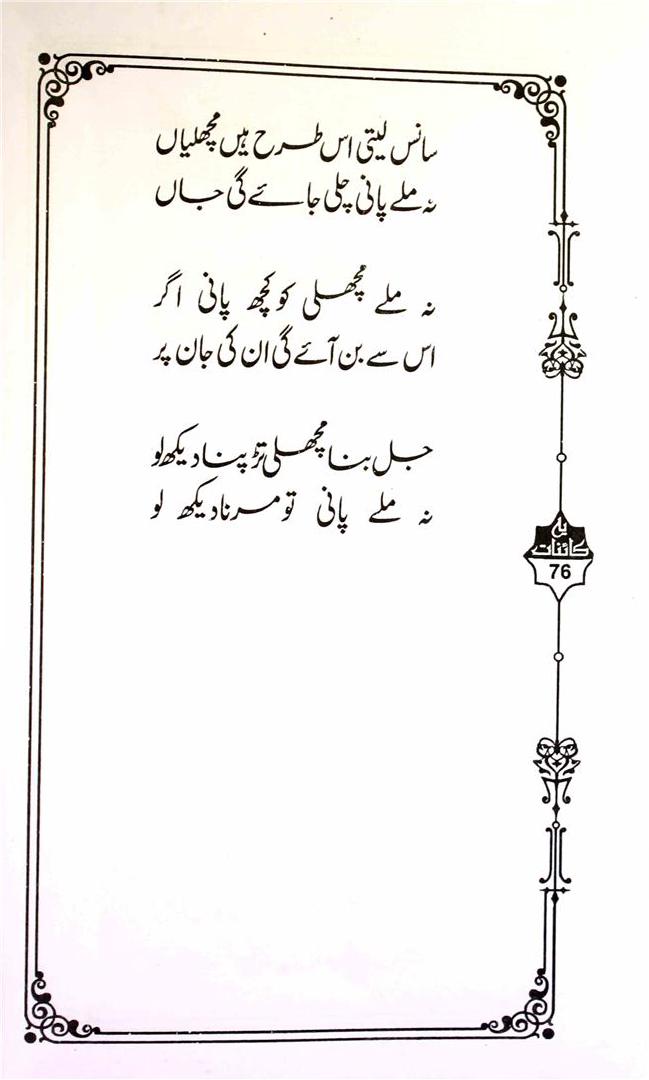 سانس لیتی اس طرح ہیں مچھلیاں
نہ ملے پانی چلی جائے گی جاں
نہ ملے مچھلی کو کچھ پانی اگر
اس سے بن آئے گی ان کی جان پر
جل بنا مچھلی تڑپنا دیکھ لو
نہ ملے پانی تو مرنا دیکھ لو
یہ
کائنات
76